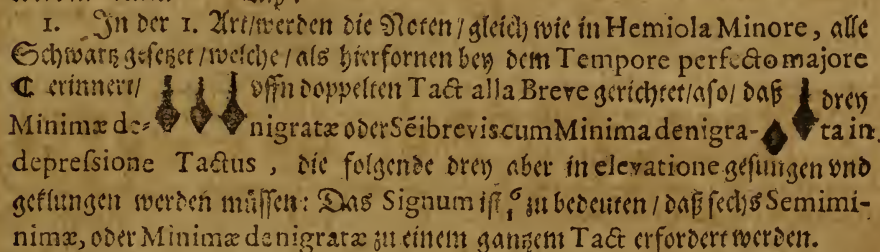 1. In der 1. Art/werden die Noten/gleich wie in Hemiola Minore, alle
Schwartz gesetzet/welche/als hierfornen bey dem Tempore perfecto majore
erinnert/ vffn doppelten Tact alla Breve gerichtet/also/ daß drey
Minimæ de= nigratæ oder Sēibrevis cum Minima denigra- ta in
depressione Tactus, die folgende drey aber in elevatione gesungen vnd
geklungen werden müssen: Das Signum ist 6 zu bedeuten/daß sechs Semimi-
nimæ, oder Minimæ denigratæ zu einem gantzem Tact erfordert werden.